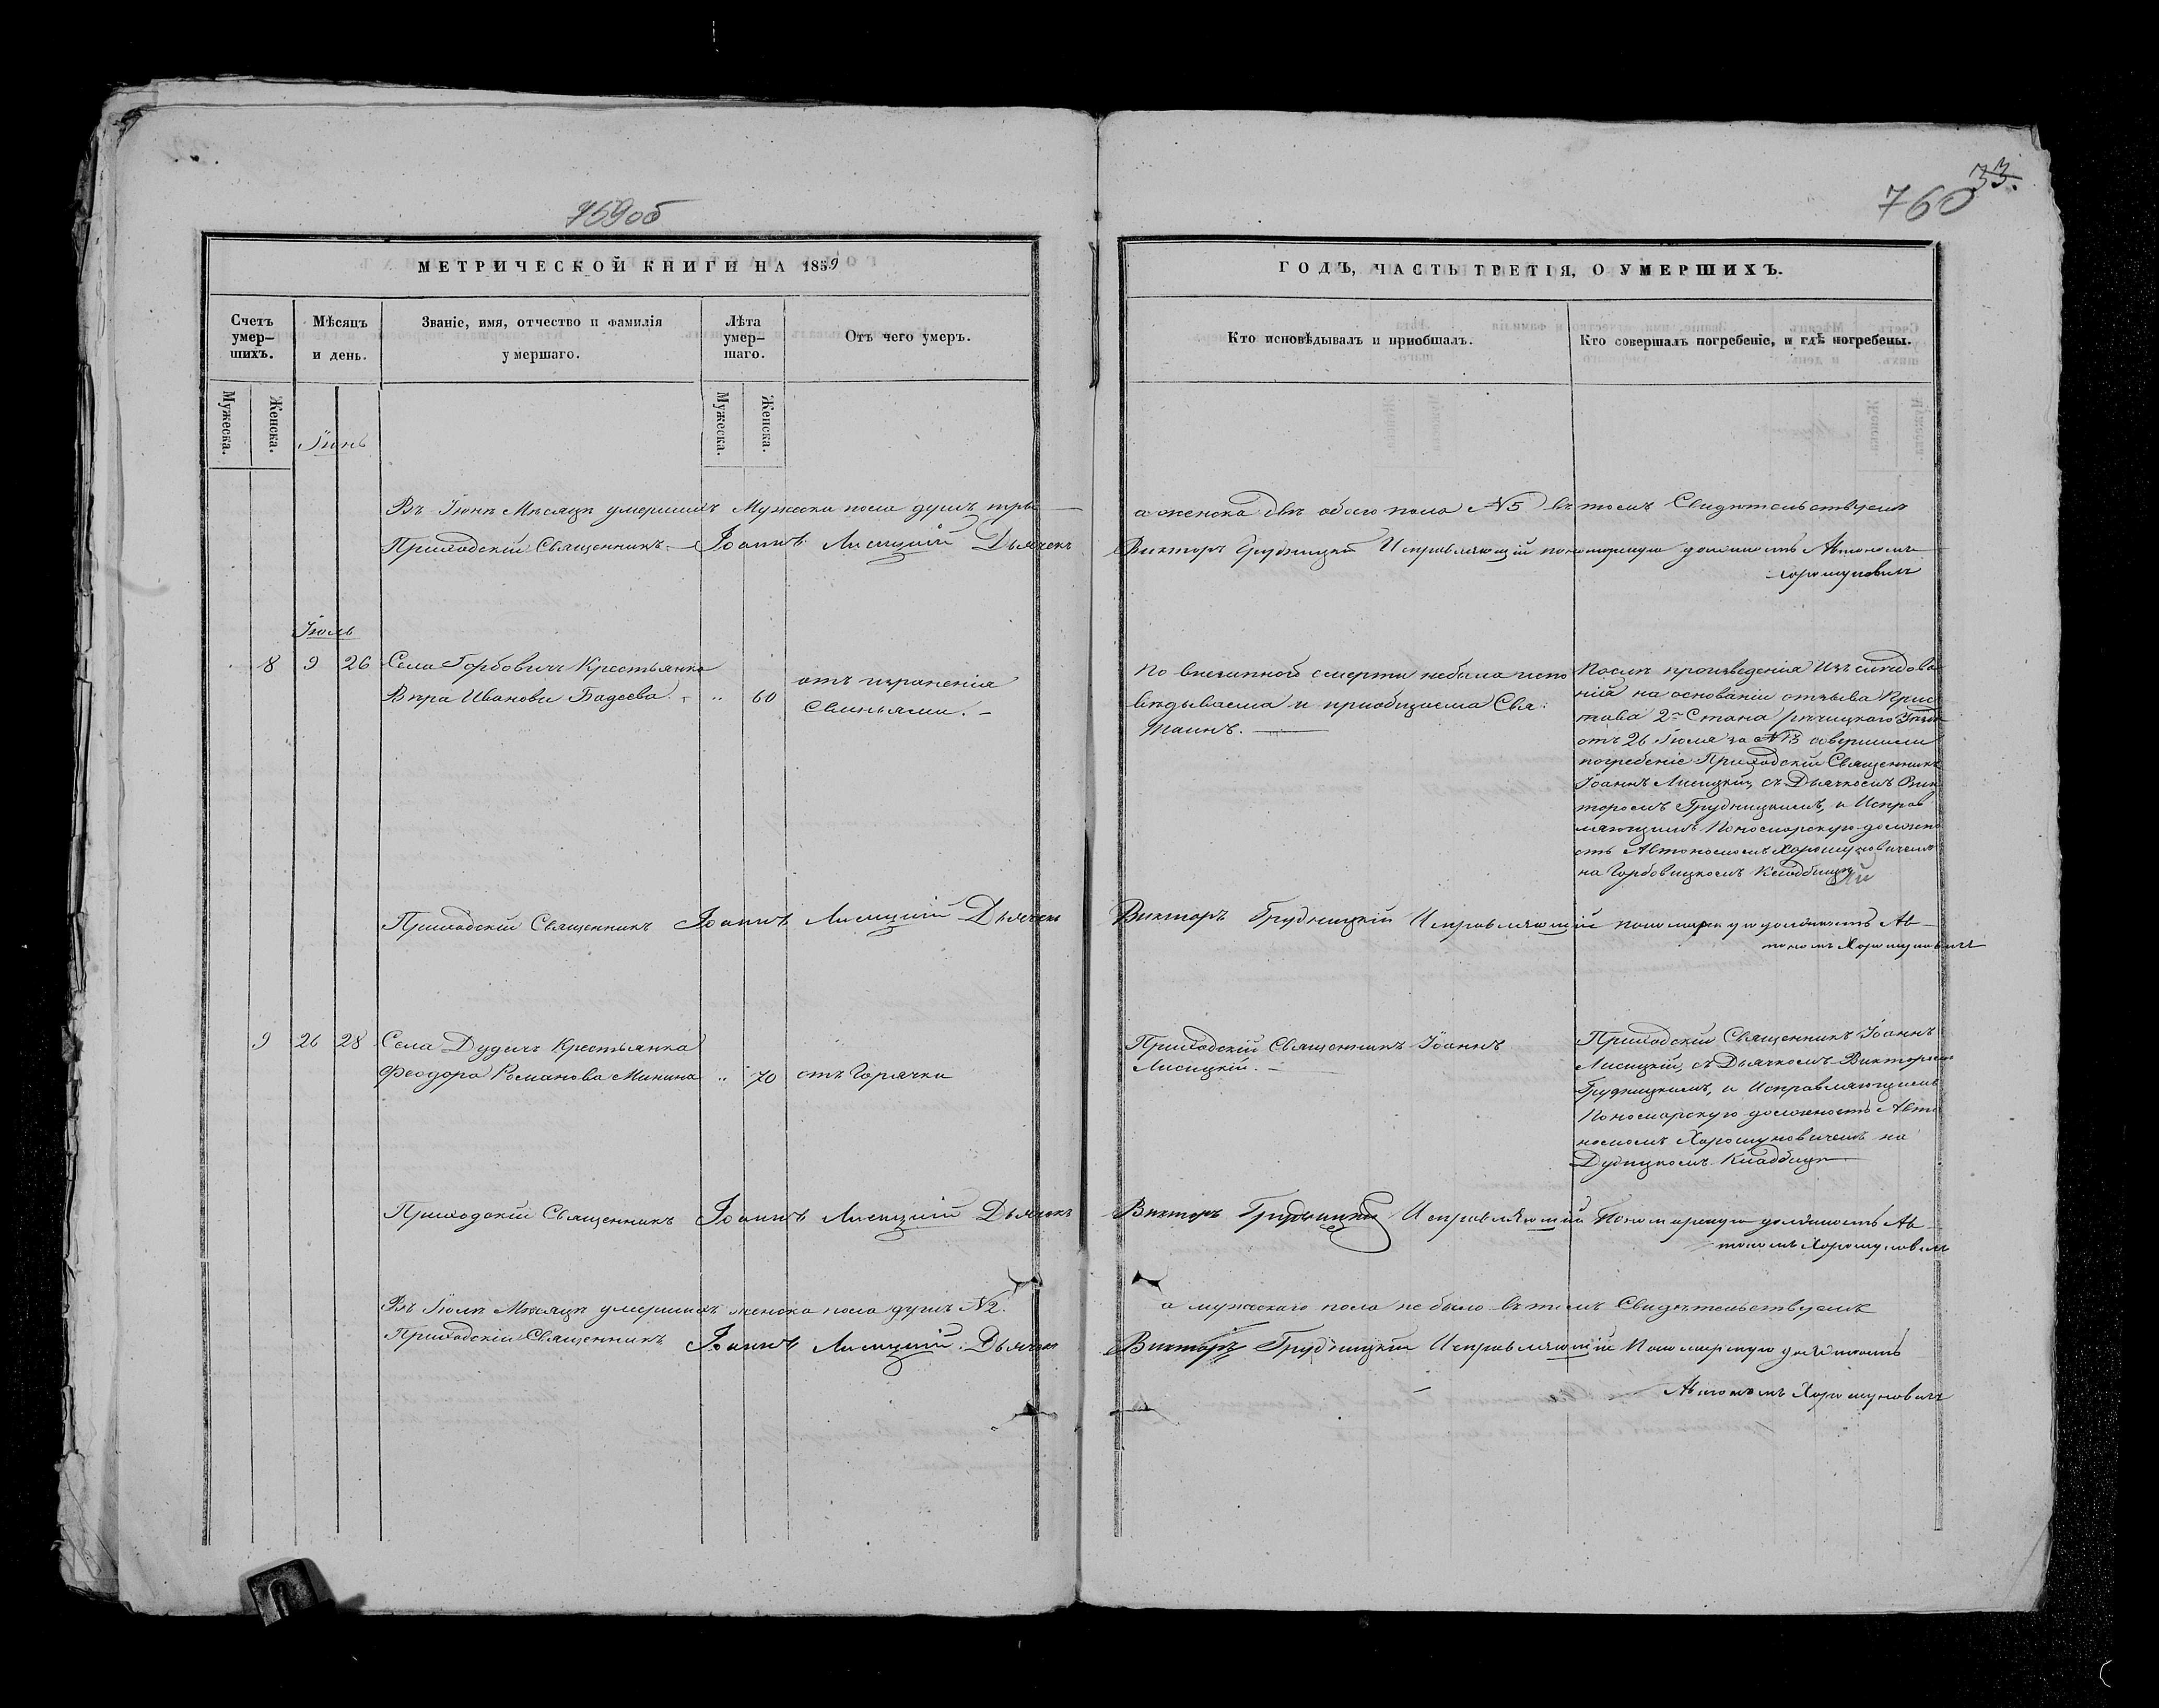 759об
МЕТРИЧЕСКОЙ КНИГИ НА 1859
Счетъ умер-шихъ.
Мѣсяцъ и день.
Званіе, имя, отчество и фамилія умершаго.
Лѣта умер-шаго.
Отъ чего умеръ.
Мужеска.
Женска.
Мужеска.
Женска.
Іюнь
Въ Іюнѣ Мѣсяцѣ умершихъ Мужеска пола душъ три
Приходскій Священникъ Іоаннъ Лисицкій Дьячекъ
Іюль
8 9 26 Села Горбовичъ Крестьянка
Вѣра Иванова Бадеева. „ 60
отъ израненія
свиньями.
Приходскій Священникъ Іоаннъ Лисицкій Дьячекъ
9 26 28 Села Дудичъ Крестьянка
Феодора Романова Минина „ 70 отъ Горячки
Приходскій Священникъ Іоаннъ Лисицкій Дьячекъ
Въ Іюлѣ Мѣсяцѣ умершихъ женска пола душъ №2.
Приходскій Священникъ Іоаннъ Лисицкій. Дьячекъ
33.
760
ГОДЪ, ЧАСТЬ ТРЕТІЯ, О УМЕРШИХЪ.
Кто исповѣдывалъ и пріобщалъ.
Кто совершалъ погребеніе, и гдѣ погребены.
а женска двѣ обоего пола №5 въ томъ Свидѣтельствуемъ
Викторъ Грудницкій Исправляющій пономарскую должность Автономъ
Хорошуновичъ
По внезапной смерти небыла испо
вѣдываема и приобщаема Свя:
Таинъ.
Послѣ произведенія Изслѣдова
нія на основаніи отзыва Прис
тава 2го Стана Рѣчицкаго
отъ 26 Іюля за № совершили
погребеніе Приходскій Священникъ
Іоаннъ Лисицкій, съ Дьячкомъ Вик
торомъ Грудницкимъ, и Исправ
ляющимъ Пономарскую должно
сть Автономомъ Хорошуновичемъ
на Горбовицкомъ Кладбищѣ
Викторъ Грудницкій Исправляющій пономарскую должность Ав-
тономъ Хорошуновичъ
Приходскій Священникъ Іоаннъ
Лисицкій.
Приходскій Священникъ Іоаннъ
Лисицкій, съ Дьячкомъ Викторомъ
Грудницкимъ, и Исправляющимъ
Пономарскую должность Авто
номомъ Хорошуновичемъ на
Дудицкомъ Кладбищѣ
Викторъ Грудницкій Исправляющій Пономарскую должность Ав-
тономъ Хорошуновичъ
а мужескаго пола не было въ томъ Свидѣтельствуемъ
Викторъ Грудницкій Исправляющій Пономарскую должность
Автономъ Хорошуновичъ